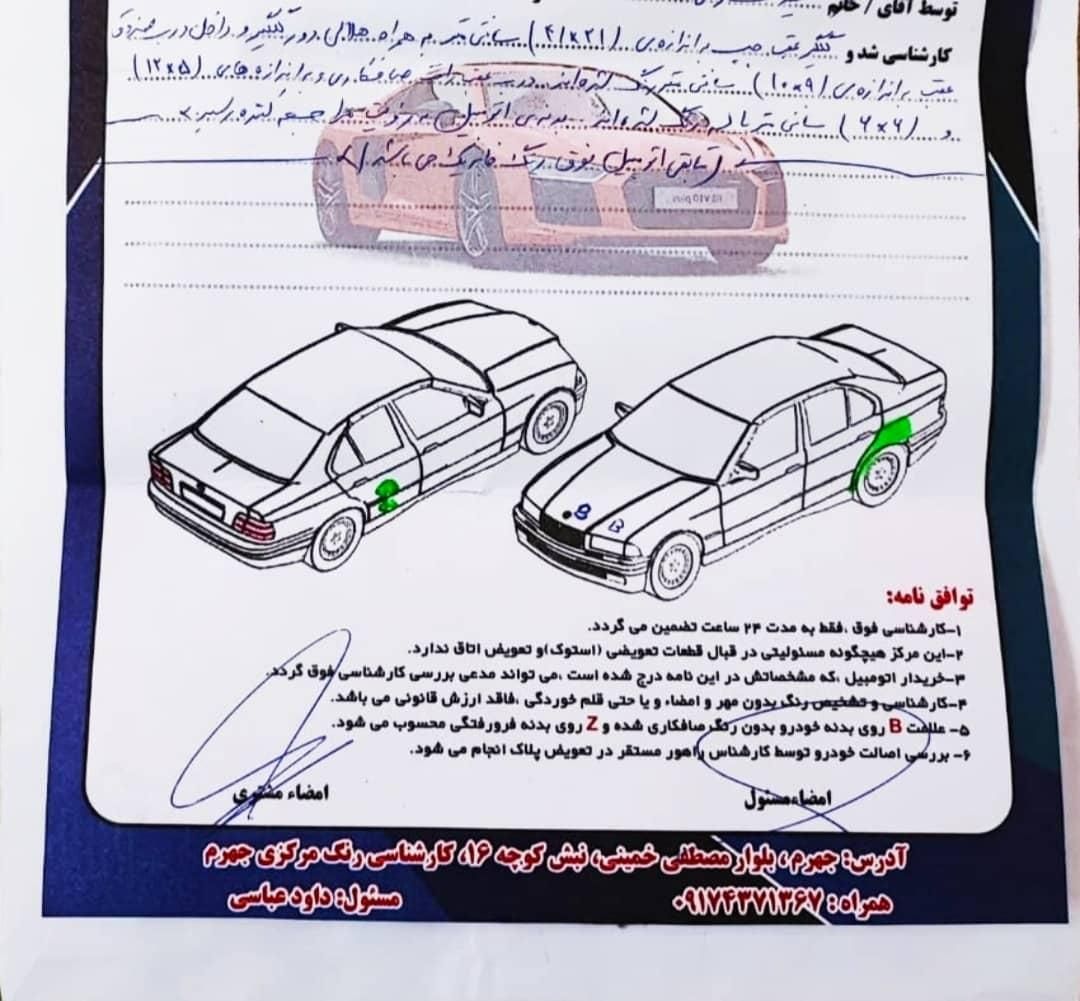 توسط آقای / خانم
کارشناسی شد و گلگیر عقب چپ به اندازه‌ی (۴۱×۲۱) سانتی متر به همراه هلالی دور گلگیر و داخل درب صندوق
عقب به اندازه‌ی (۱۰×۹) سانتی متر رنگ شده‌اند. درب عقب راست صافکاری و به اندازه های (۱۲×۵)
و (۶×۶) سانتی متر رنگ شده‌اند
(مابقی اتومبیل فوق رنگ فابریک می باشد)
B B
توافق نامه:
۱-کارشناسی فوق ،فقط به مدت ۲۴ ساعت تضمین می گردد.
۲-این مرکز هیچگونه مسئولیتی در قبال قطعات تعویضی (استوک)و تعویض اتاق ندارد.
۳-خریدار اتومبیل ،که مشخصاتش در این نامه درج شده است ،می تواند مدعی بررسی کارشناسی فوق گردد.
۴-کارشناسی و تشخیص رنگ بدون مهر و امضاء و یا حتی قلم خوردگی ،فاقد ارزش قانونی می باشد.
۵- علامت B روی بدنه خودرو بدون رنگ صافکاری شده و Z روی بدنه فرورفتگی محسوب می شود.
۶- بررسی اصالت خودرو توسط کارشناس راهور مستقر در تعویض پلاک انجام می شود.
امضاءمسئول امضاء مشتری
آدرس: جهرم ، بلوار مصطفی خمینی، نبش کوچه ۱۶، کارشناسی رنگ مرکزی جهرم
همراه : ۰۹۱۷۴۳۷۱۳۶۷ مسئول: داود عباسی